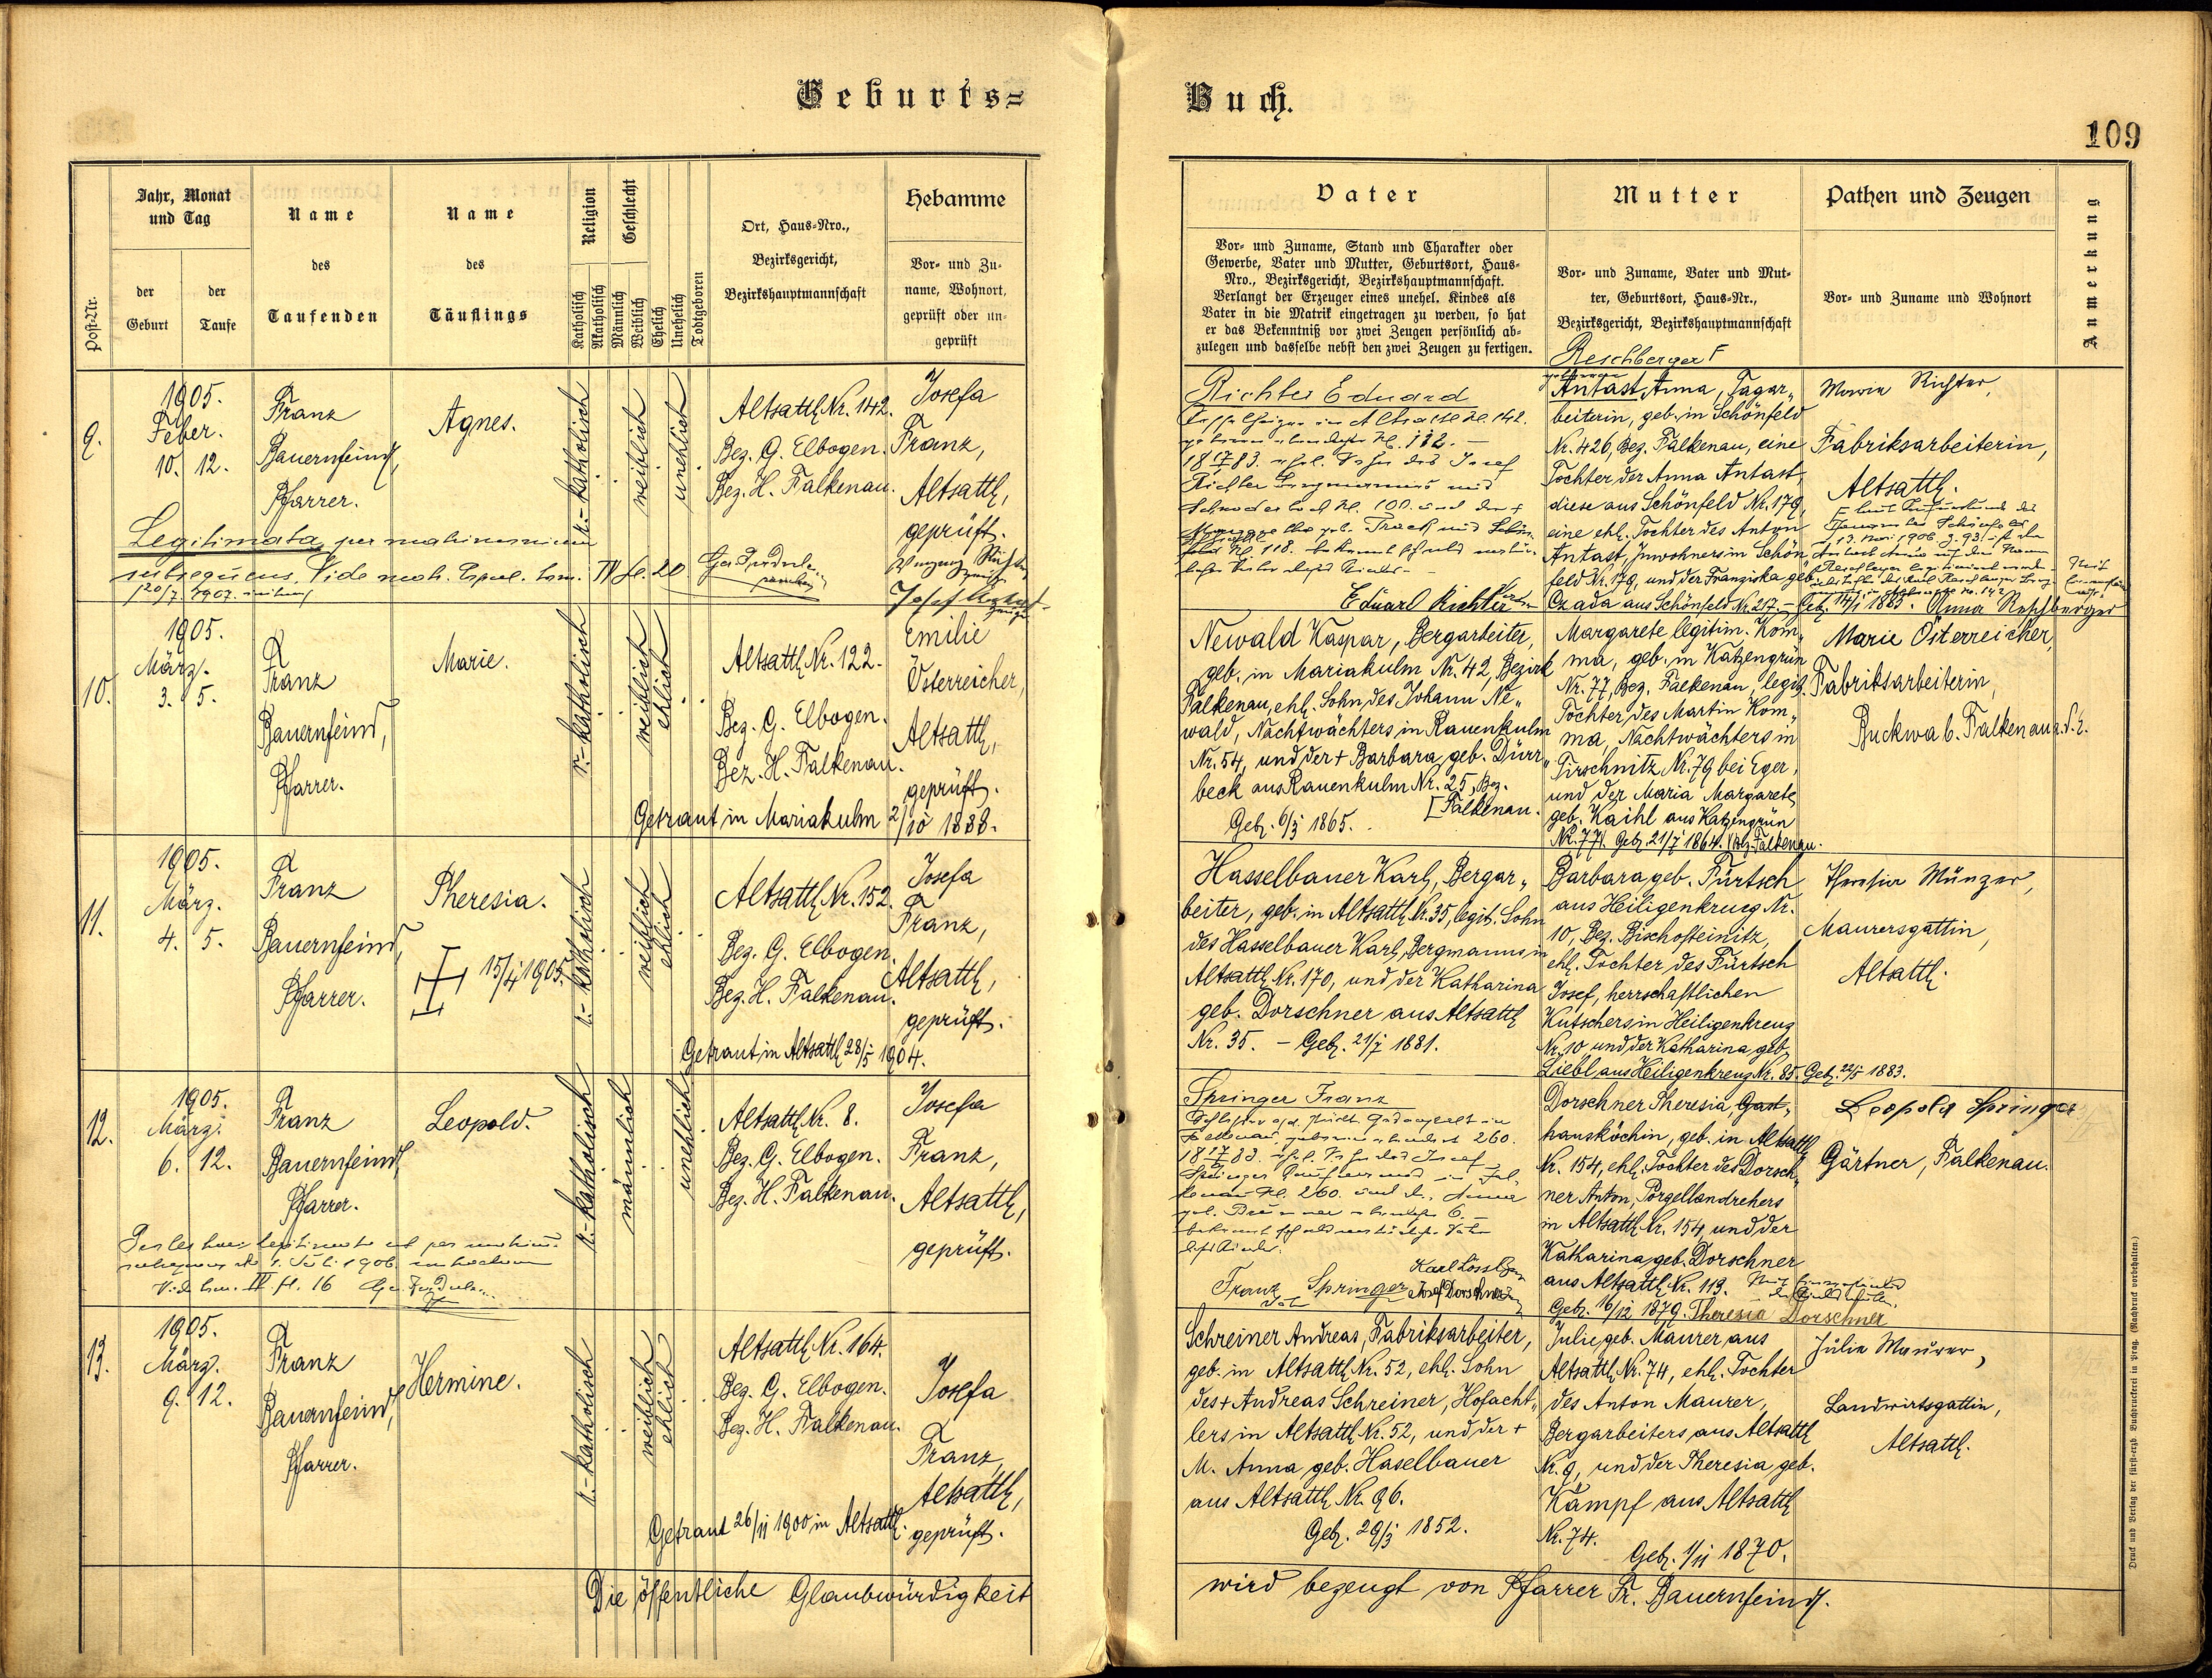 Geburts=
Buch.
109
Post-Nr.
Jahr, Monat
und Tag
der
Geburt
der
Taufe
Name
des
Taufenden
Name
des
Täuflings
Religion
Katholisch
Akatholisch
Geschlecht
Männlich
Weiblich
Ehelich
Unehelich
Todtgeboren
Ort, Haus-Nro.,
Bezirksgericht,
Bezirkshauptmannschaft
Hebamme
Vor- und Zu-
name, Wohnort,
geprüft oder un-
geprüft
Vater
Vor- und Zuname, Stand und Charakter oder
Gewerbe, Vater und Mutter, Geburtsort, Haus-
Nro., Bezirksgericht, Bezirkshauptmannschaft.
Verlangt der Erzeuger eines unehel. Kindes als
Vater in die Matrik eingetragen zu werden, so hat
er das Bekenntniß vor zwei Zeugen persönlich ab-
zulegen und dasselbe nebst den zwei Zeugen zu fertigen.
Mutter
Vor- und Zuname, Vater und Mut-
ter, Geburtsort, Haus-Nr.,
Bezirksgericht, Bezirkshauptmannschaft
Pathen und Zeugen
Vor- und Zuname und Wohnort
Anmerkung
9.
1905.
Feber.
10. 12.
Franz
Bauernfeind,
Pfarrer.
Agnes.
r.-katholisch
weiblich
unehlich
Altsattl Nr. 142.
Bez. G. Elbogen.
Bez. H. Falkenau.
Josefa
Franz,
Altsattl,
geprüft.
Legitimata per matrimonium
subsequens. Vide matr. Copul. tom. IV fol. 20
Richter Eduard
Eduard Richter
Reschberger
Antast Anna, Tagar-
beiterin, geb. in Schönfeld
Nr. 426, Bez. Falkenau, eine
Tochter der Anna Antast,
diese aus Schönfeld Nr. 179,
eine ehl. Tochter des Anton
Antast, Inwohners in Schön
feld Nr. 179, und der Franziska geb.
Czada aus Schönfeld Nr. 217. - Geb. 14/1 1883. Anna Reschberger
Maria Richter,
Fabriksarbeiterin,
Altsattl.
10.
1905.
März.
3. 5.
Franz
Bauernfeind,
Pfarrer.
Marie.
r.-katholisch
weiblich
ehlich
Altsattl Nr. 122.
Bez. G. Elbogen.
Bez. H. Falkenau.
Getraut in Mariakulm 2/10 1888.
Emilie
Österreicher,
Altsattl,
geprüft.
Newald Kaspar, Bergarbeiter,
geb. in Mariakulm Nr. 42, Bezirk
Falkenau, ehl. Sohn des Johann Ne-
wald, Nachtwächters in Rauenkulm
Nr. 54, und der + Barbara geb. Dürr-
beck aus Rauenkulm Nr. 25, Bez.
[Falkenau.
Geb. 6/3 1865.
Margarete legitim. Kom-
ma, geb. in Katzengrün
Nr. 77, Bez. Falkenau, legit.
Tochter des Martin Kom-
ma, Nachtwächters in
Tirschnitz Nr. 79 bei Eger,
und der Maria Margarete
geb. Kaihl aus Katzengrün
Nr. 77. Geb. 21/7 1864. Bez. Falkenau.
Marie Österreicher,
Fabriksarbeiterin,
Buckwa b. Falkenau a. E.
11.
1905.
März.
4. 5.
Franz
Bauernfeind,
Pfarrer.
Theresia.
15/4 1905.
r.-katholisch
weiblich
ehlich
Altsattl Nr. 152.
Bez. G. Elbogen.
Bez. H. Falkenau.
Getraut in Altsattl 28/5 1904.
Josefa
Franz,
Altsattl,
geprüft.
Hasselbauer Karl, Bergar-
beiter, geb. in Altsattl Nr. 35, legit. Sohn
des Hasselbauer Karl, Bergmanns in
Altsattl Nr. 170, und der Katharina
geb. Dorschner aus Altsattl
Nr. 35. - Geb. 21/7 1881.
Barbara geb. Fürtsch
aus Heiligenkreuz Nr.
10, Bez. Bischofteinitz,
ehl. Tochter des Fürtsch
Josef, herrschaftlichen
Kutschers in Heiligenkreuz
Nr. 10 und der Katharina geb.
Liebl aus Heiligenkreuz Nr. 85. Geb. 22/5 1883.
Theresia Münzer,
Maurersgattin,
Altsattl.
12.
1905.
März.
6. 12.
Franz
Bauernfeind,
Pfarrer.
Leopold.
r.-katholisch
männlich
unehlich
Altsattl Nr. 8.
Bez. G. Elbogen.
Bez. H. Falkenau.
Josefa
Franz,
Altsattl,
geprüft.
Springer Franz
Franz Springer
Karl Lössl
Josef Dorschner
Dorschner Theresia, Gast-
hausköchin, geb. in Altsattl
Nr. 154, ehl. Tochter des Dorsch-
ner Anton, Porzellandrehers
in Altsattl Nr. 154 und der
Katharina geb. Dorschner
aus Altsattl Nr. 113.
Geb. 16/12 1879. Theresia Dorschner
Leopold Springer
Gärtner, Falkenau.
13.
1905.
März.
9. 12.
Franz
Bauernfeind,
Pfarrer.
Hermine.
r.-katholisch
weiblich
ehlich
Altsattl Nr. 164.
Bez. G. Elbogen.
Bez. H. Falkenau.
Getraut 26/11 1900 in Altsattl.
Josefa
Franz,
Altsattl,
geprüft.
Schreiner Andreas, Fabriksarbeiter,
geb. in Altsattl Nr. 52, ehl. Sohn
des + Andreas Schreiner, Hofächt-
lers in Altsattl Nr. 52, und der +
M. Anna geb. Haselbauer
aus Altsattl Nr. 96.
Geb. 29/3 1852.
Julie geb. Maurer aus
Altsattl Nr. 74, ehl. Tochter
des Anton Maurer,
Bergarbeiters aus Altsattl
Nr. 9, und der Theresia geb.
Kämpf aus Altsattl
Nr. 74.
Geb. 1/11 1870.
Julie Maurer,
Landwirtsgattin,
Altsattl.
Die öffentliche Glaubwürdigkeit
wird bezeugt von Pfarrer Fr. Bauernfeind.
Druck und Verlag der fürst-erzb. Buchdruckerei in Prag. (Nachdruck vorbehalten.)